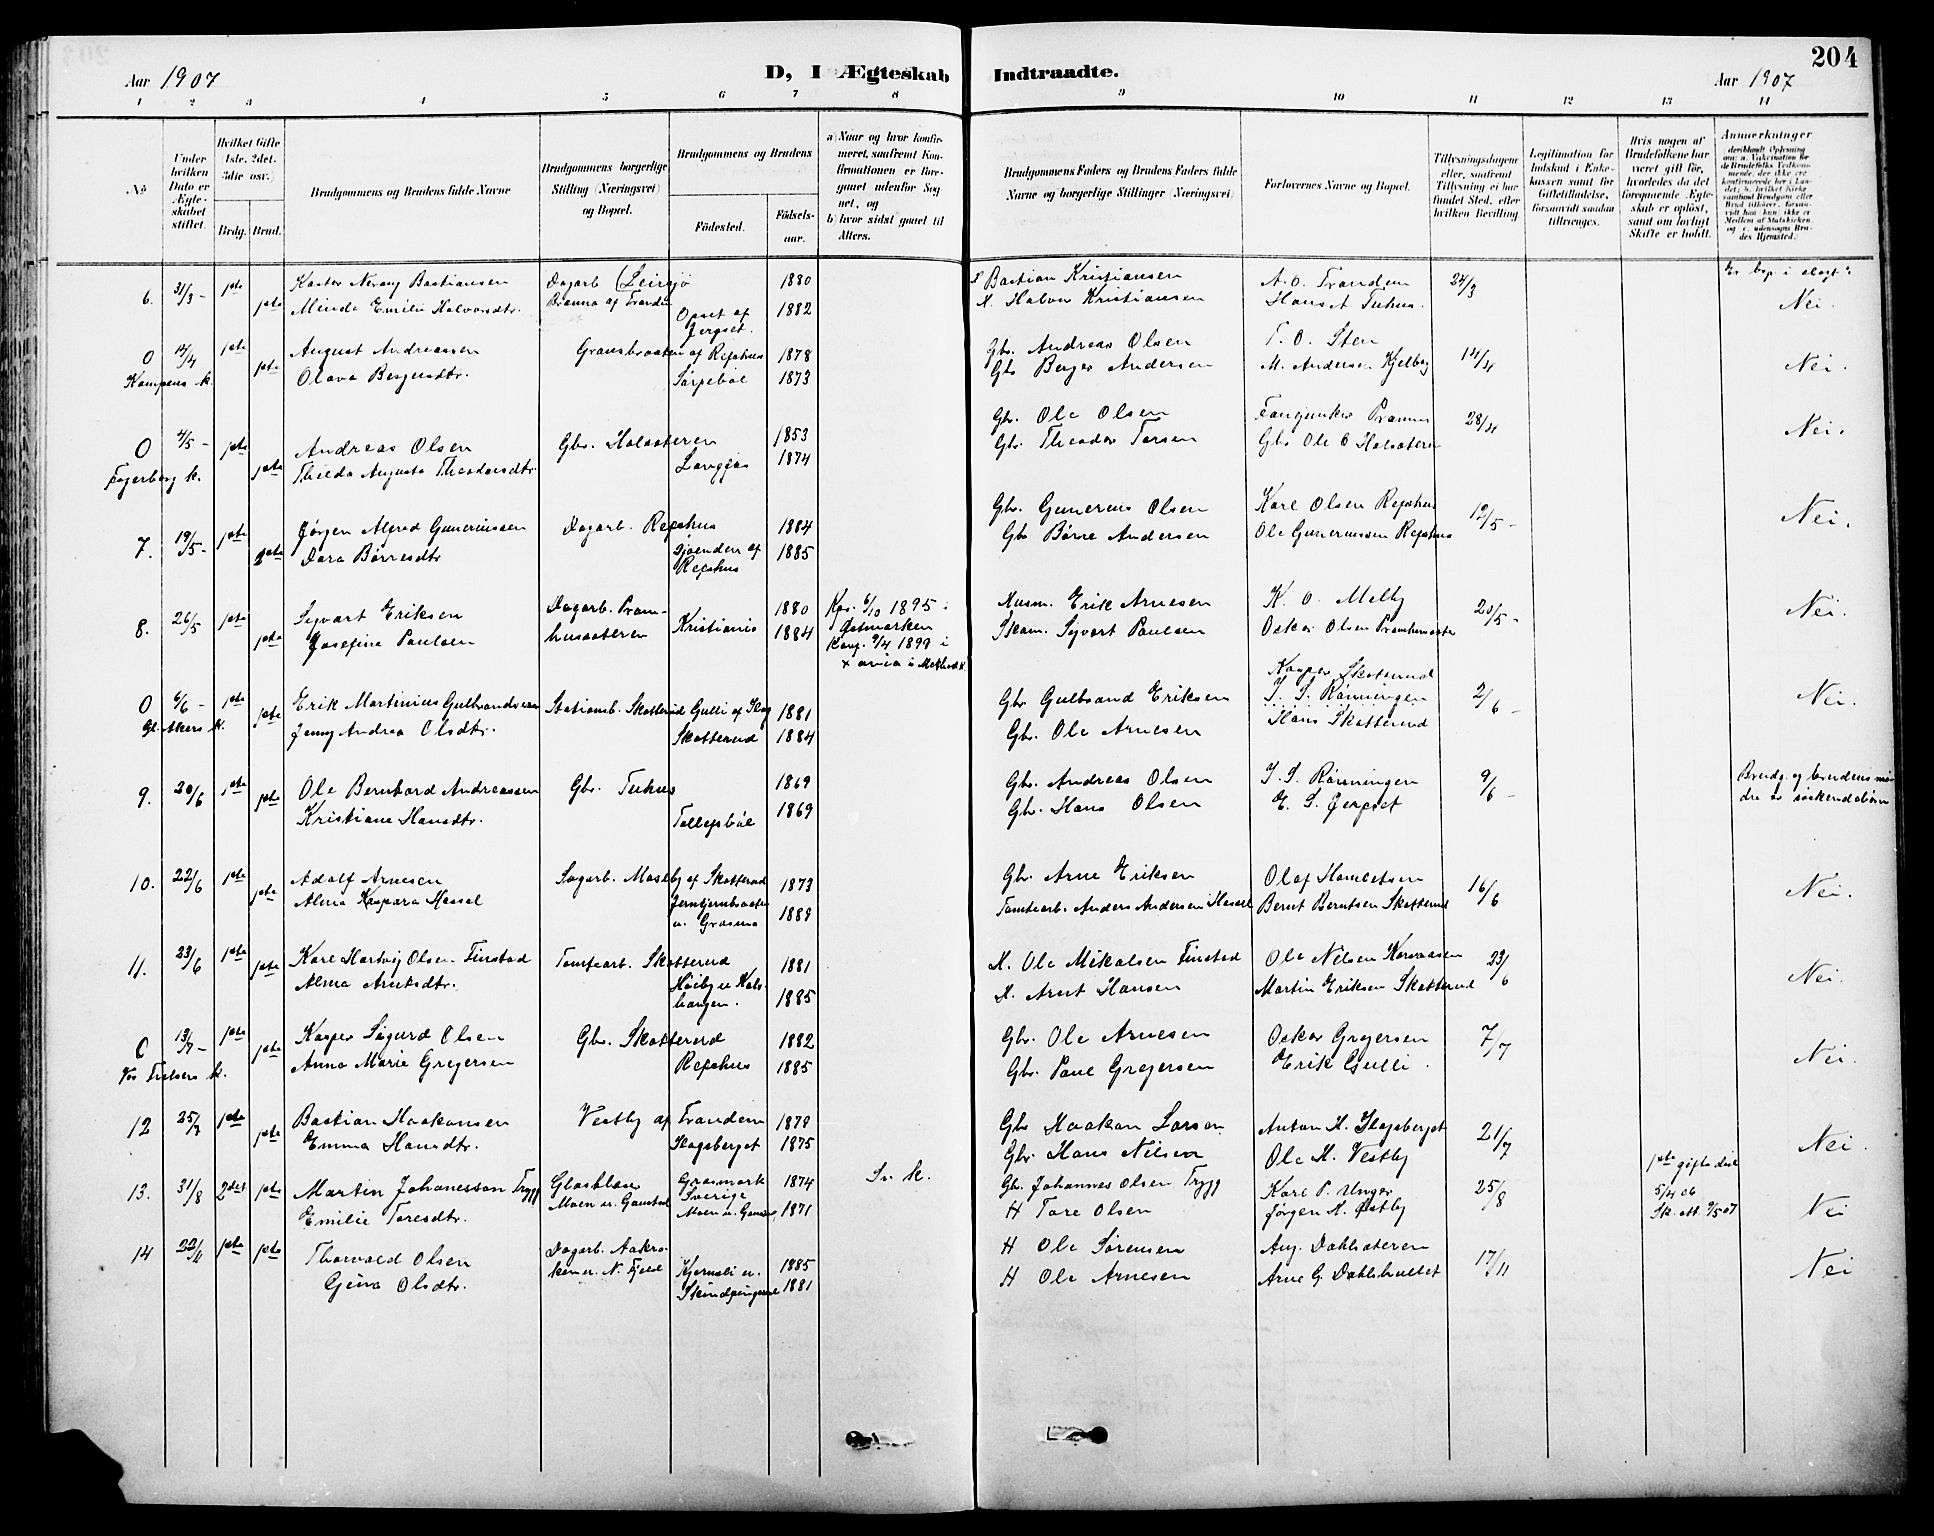 204
Aar 1907
D, I Ægteskab Indtraadte.
Aar 1907
1 2 3 4 5 6 7 8 9 10 11 12 13 14
No
Under hvilken Dato er Ægteskabet stiftet.
Hvilket Gifte 1ste. 2det. 3die osv.)
Brdg. Brud.
Brudgommens og Brudens fulde Navne
Brudgommens borgerlige Stilling (Næringsvei) og Bopæl.
Brudgommens og Brudens
Fødested.
Fødselsaar.
a) Naar og hvor konfirmeret, saafremt Konfirmationen er foregaaet udenfor Sognet, og
b) hvor sidst gaaet til Alters.
Brudgommens Faders og Brudens Faders fulde Navne og borgerlige Stillinger (Næringsvei)
Forlovernes Navne og Bopæl.
Tillysningsdagene eller, saafremt Tillysning ei har fundet Sted, efter hvilken Bevilling.
Legitimation for Indskud i Enkekassen samt for Giftetilladelse, forsaavidt saadan tiltrænges.
Hvis nogen af Brudefolkene har været gift før, hvorledes da det foregaaende Ægteskab er opløst, samt om lovligt Skifte er holdt.
Anmærkninger
6. 31/3 - 1ste Bastiansen Dagarb. 1880 Bastian Kristiansen A. O. Tranden 24/3
1ste Minda Emilie Halvorsdtr. 1882 Halvor Kristiansen Hans A. Tuhus. Nei.
O 14/4 1ste August Andreassen 1878 Gbr. Andreas Olsen T. O. Sten 14/4 Nei.
Kampens k. 1ste Olava Bergersdtr. Sørpebøl 1873 Gbr Berger Andersen M. Andersen Kjelberg
O 4/5 - 1ste Andreas Olsen Gbr. Halsæteren 1853 Gbr. Ole Olsen 28/4 Nei.
Fagerborg k. 1ste Thilda Augusta Theodorsdtr. 1874 Gbr. Theodor Torsen Gbr Ole O Halsæteren
7. 19/5 - 1ste Jørgen Alfred Guneriussen Dagarb. Repshus 1884 Gbr. Gunerius Olsen Karl Olsen Repshus 12/5 - Nei.
1ste Dora Børresdtr Repshus 1885 Gbr Børre Andersen Ole Gunerussen Repshus
8. 26/5 1ste Sigvart Eriksen Dagarb. Pramhussæteren Kristiania 1880 Kfr. 6/10 1895 i Østmarken Husm. Erik Arnesen K. O. Melby 20/5 - Nei.
1ste Josefine Paulsen 1884 Konf. 9/4 1899 i Skom. Sigvart Paulsen Oskar Olsen
O 6/6 - 1ste Erik Martinius Gulbrandsen Stationsb. Skotterud Gulli af Skog 1881 Gbr. Gulbrand Eriksen Kasper Skotterud 2/6 - Nei.
Gl. Akers k. 1ste Jenny Andrea Olsdtr. Skotterud 1884 Gbr. Ole Arnesen J. J. Rønningen
Hans Skotterud
9. 20/6 1ste Ole Bernhard Andreassen Gbr. Tuhus 1869 Gbr. Andreas Olsen J. J. Rønningen 9/6 - Brudg. og brudens mødre er søskendebørn
1ste Kristiane Hansdtr. Tollefsbøl 1869 Gbr. Hans Olsen E. S. Jerpset
10. 22/6 1ste Adolf Arnesen Sagarb. af Skotterud 1873 Gbr. Arne Eriksen Olaf Hamletsen 16/6 Nei.
1ste Alma Kaspara Hassel 1889 Tomtearb. Anders Andersen Hassel Bernt Berntsen Skotterud
11. 23/6 1ste Karl Hartvig Olsen Finstad Tomtearb. Skotterud 1881 H. Ole Mikalsen Finstad Ole Nilsen 23/6 Nei.
1ste Alma Arntsdtr. 1885 H. Arnt Hansen Martin Eriksen Skotterud
O 13/7 - 1ste Kasper Sigurd Olsen Gbr. Skotterud 1882 Gbr. Ole Arnesen Oskar Gregersen 7/7 Nei.
1ste Anna Marie Gregersen Repshus 1885 Gbr. Paul Gregersen Erik Gulli.
12 25/7 1ste Bastian Haakonsen Vestby af Tranden 1879 Gbr Haakon Larsen Anton H. Hogsberget 21/7 Nei.
1ste Emma Hansdtr. Hogsberget 1875 Gbr. Hans Nilsen Ole H. Vestby
13. 31/8 2det 1ste Martin Johannesson Trygg Grasmark Sverige 1874 Sv. k. Gbr. Johannes Olsen Trygg Karl P. Unger 25/8 1ste gifte død 5/4 06 Nei
Emilie Toresdtr. 1871 H Tore Olsen Jørgen A. Østby Sk. att. 7/5 07
14 1ste 1ste Thorvald Olsen Dagarb. 1885 H Ole Sørensen Aug. Dahlsæteren 17/11 Nei
Gina Olsdtr. 1881 H Ole Arnesen Arne G. Dahlshultet